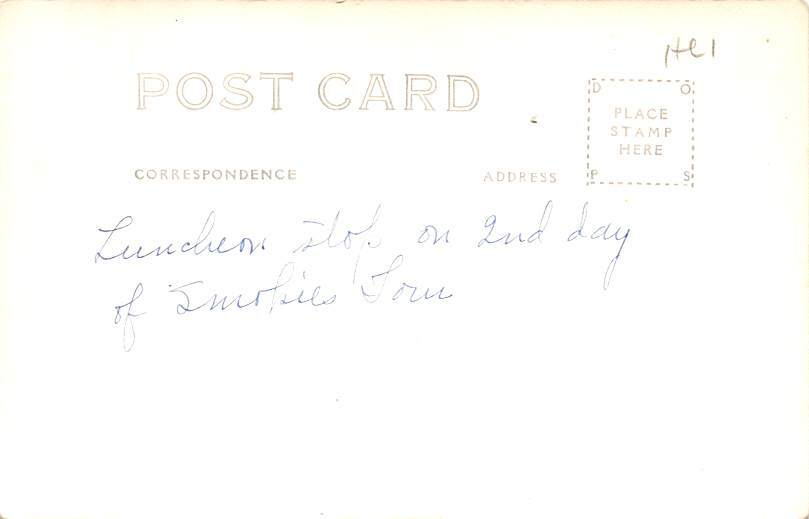 POST CARD
CORRESPONDENCE
ADDRESS
D O
PLACE
STAMP
HERE
P S
Luncheon stop on 2nd day
of Smokies Tour